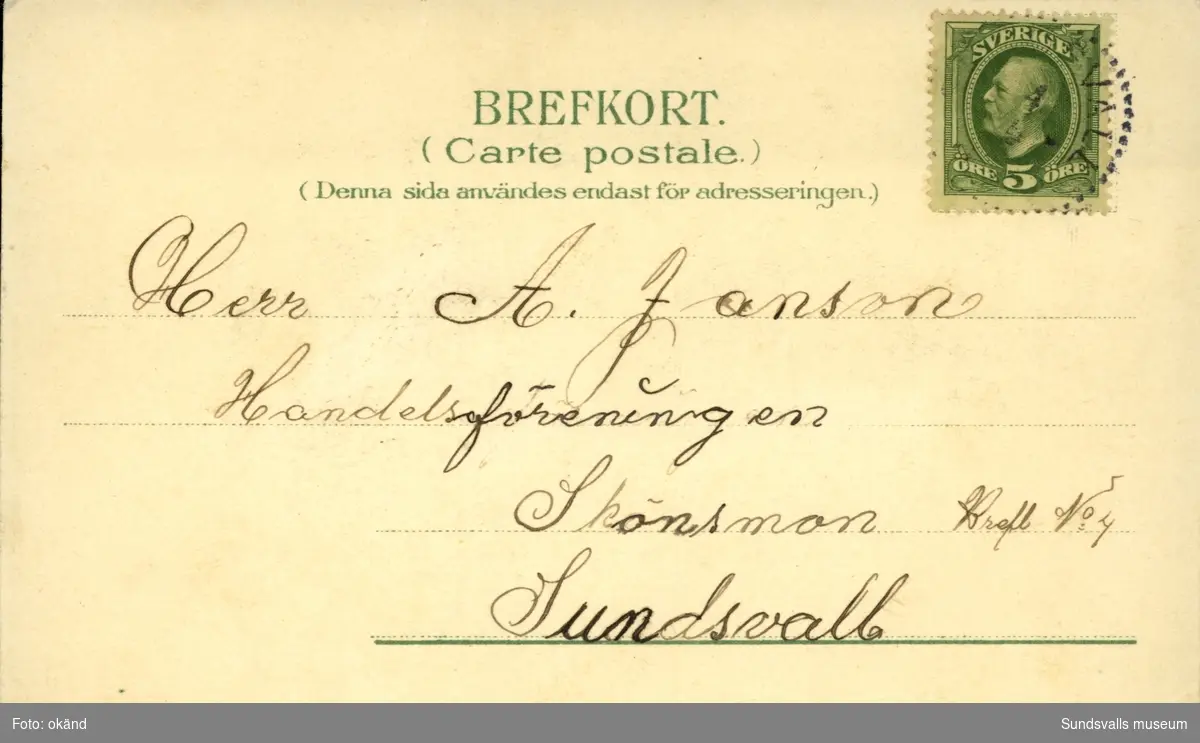 SVERIGE
ÖRE 5 ÖRE
BREFKORT.
(Carte postale.)
(Denna sida användes endast för adresseringen.)
Herr A. Janson
Handelsföreningen
Skönsmon Brefl No 4
Sundsvall
Foto: okänd
Sundsvalls museum